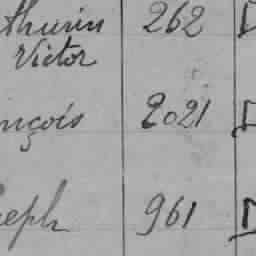 thurin 262
Victor
nçois 2021
seph 961